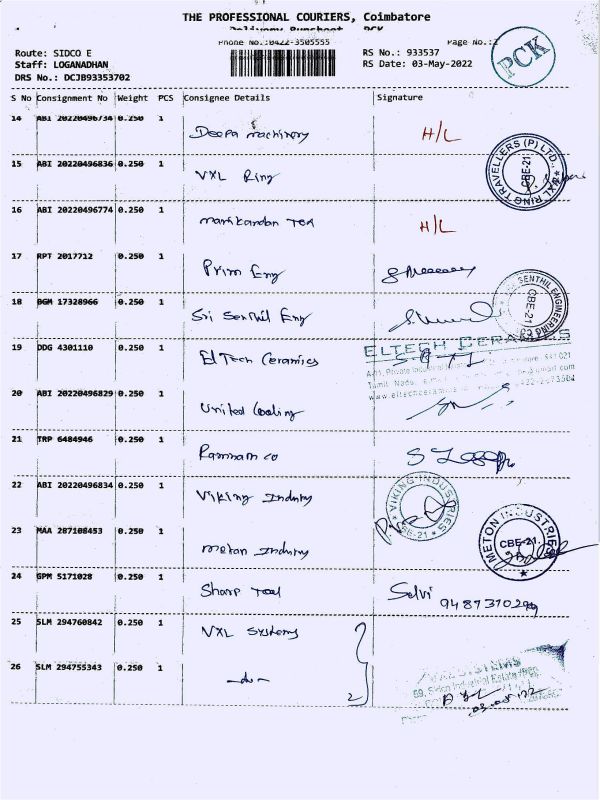 THE PROFESSIONAL COURIERS, Coimbatore
Delivery Runsheet PCK
Phone No.:0422-3505555 Page No.:2
PCK
Route: SIDCO E RS No.: 933537
Staff: LOGANADHAN RS Date: 03-May-2022
DRS No.: DCJB93353702
S No Consignment No Weight PCS Consignee Details Signature
14 ABI 20220496734 0.250 1 Deepa machinery H/L
15 ABI 20220496836 0.250 1 VXL Ring
VXL RING TRAVELLERS (P) LTD., CBE-21
16 ABI 20220496774 0.250 1 manikandan Tea H/L
17 RPT 2017712 0.250 1 Prim Eng
18 BGM 17328966 0.250 1 Sri Senthil Eng
SENTHIL ENGINEERING CBE-21
19 DDG 4301110 0.250 1 El Tech Ceramics
ELTECH CERAMICS
Private Industrial 641 021
Tamil Nadu
20 ABI 20220496829 0.250 1 United Cooling
21 TRP 6484946 0.250 1 Ramnam co
22 ABI 20220496834 0.250 1 Viking Industry
VIKING INDUSTRIES CBE-21
23 MAA 287108453 0.250 1 metan Industry
METON INDUSTRIES CBE-21.
24 GPM 5171028 0.250 1 Sharp Tool Selvi
25 SLM 294760842 0.250 1 VXL Systems
26 SLM 294755343 0.250 1 -do- 2
SYSTEMS
Industrial Estate